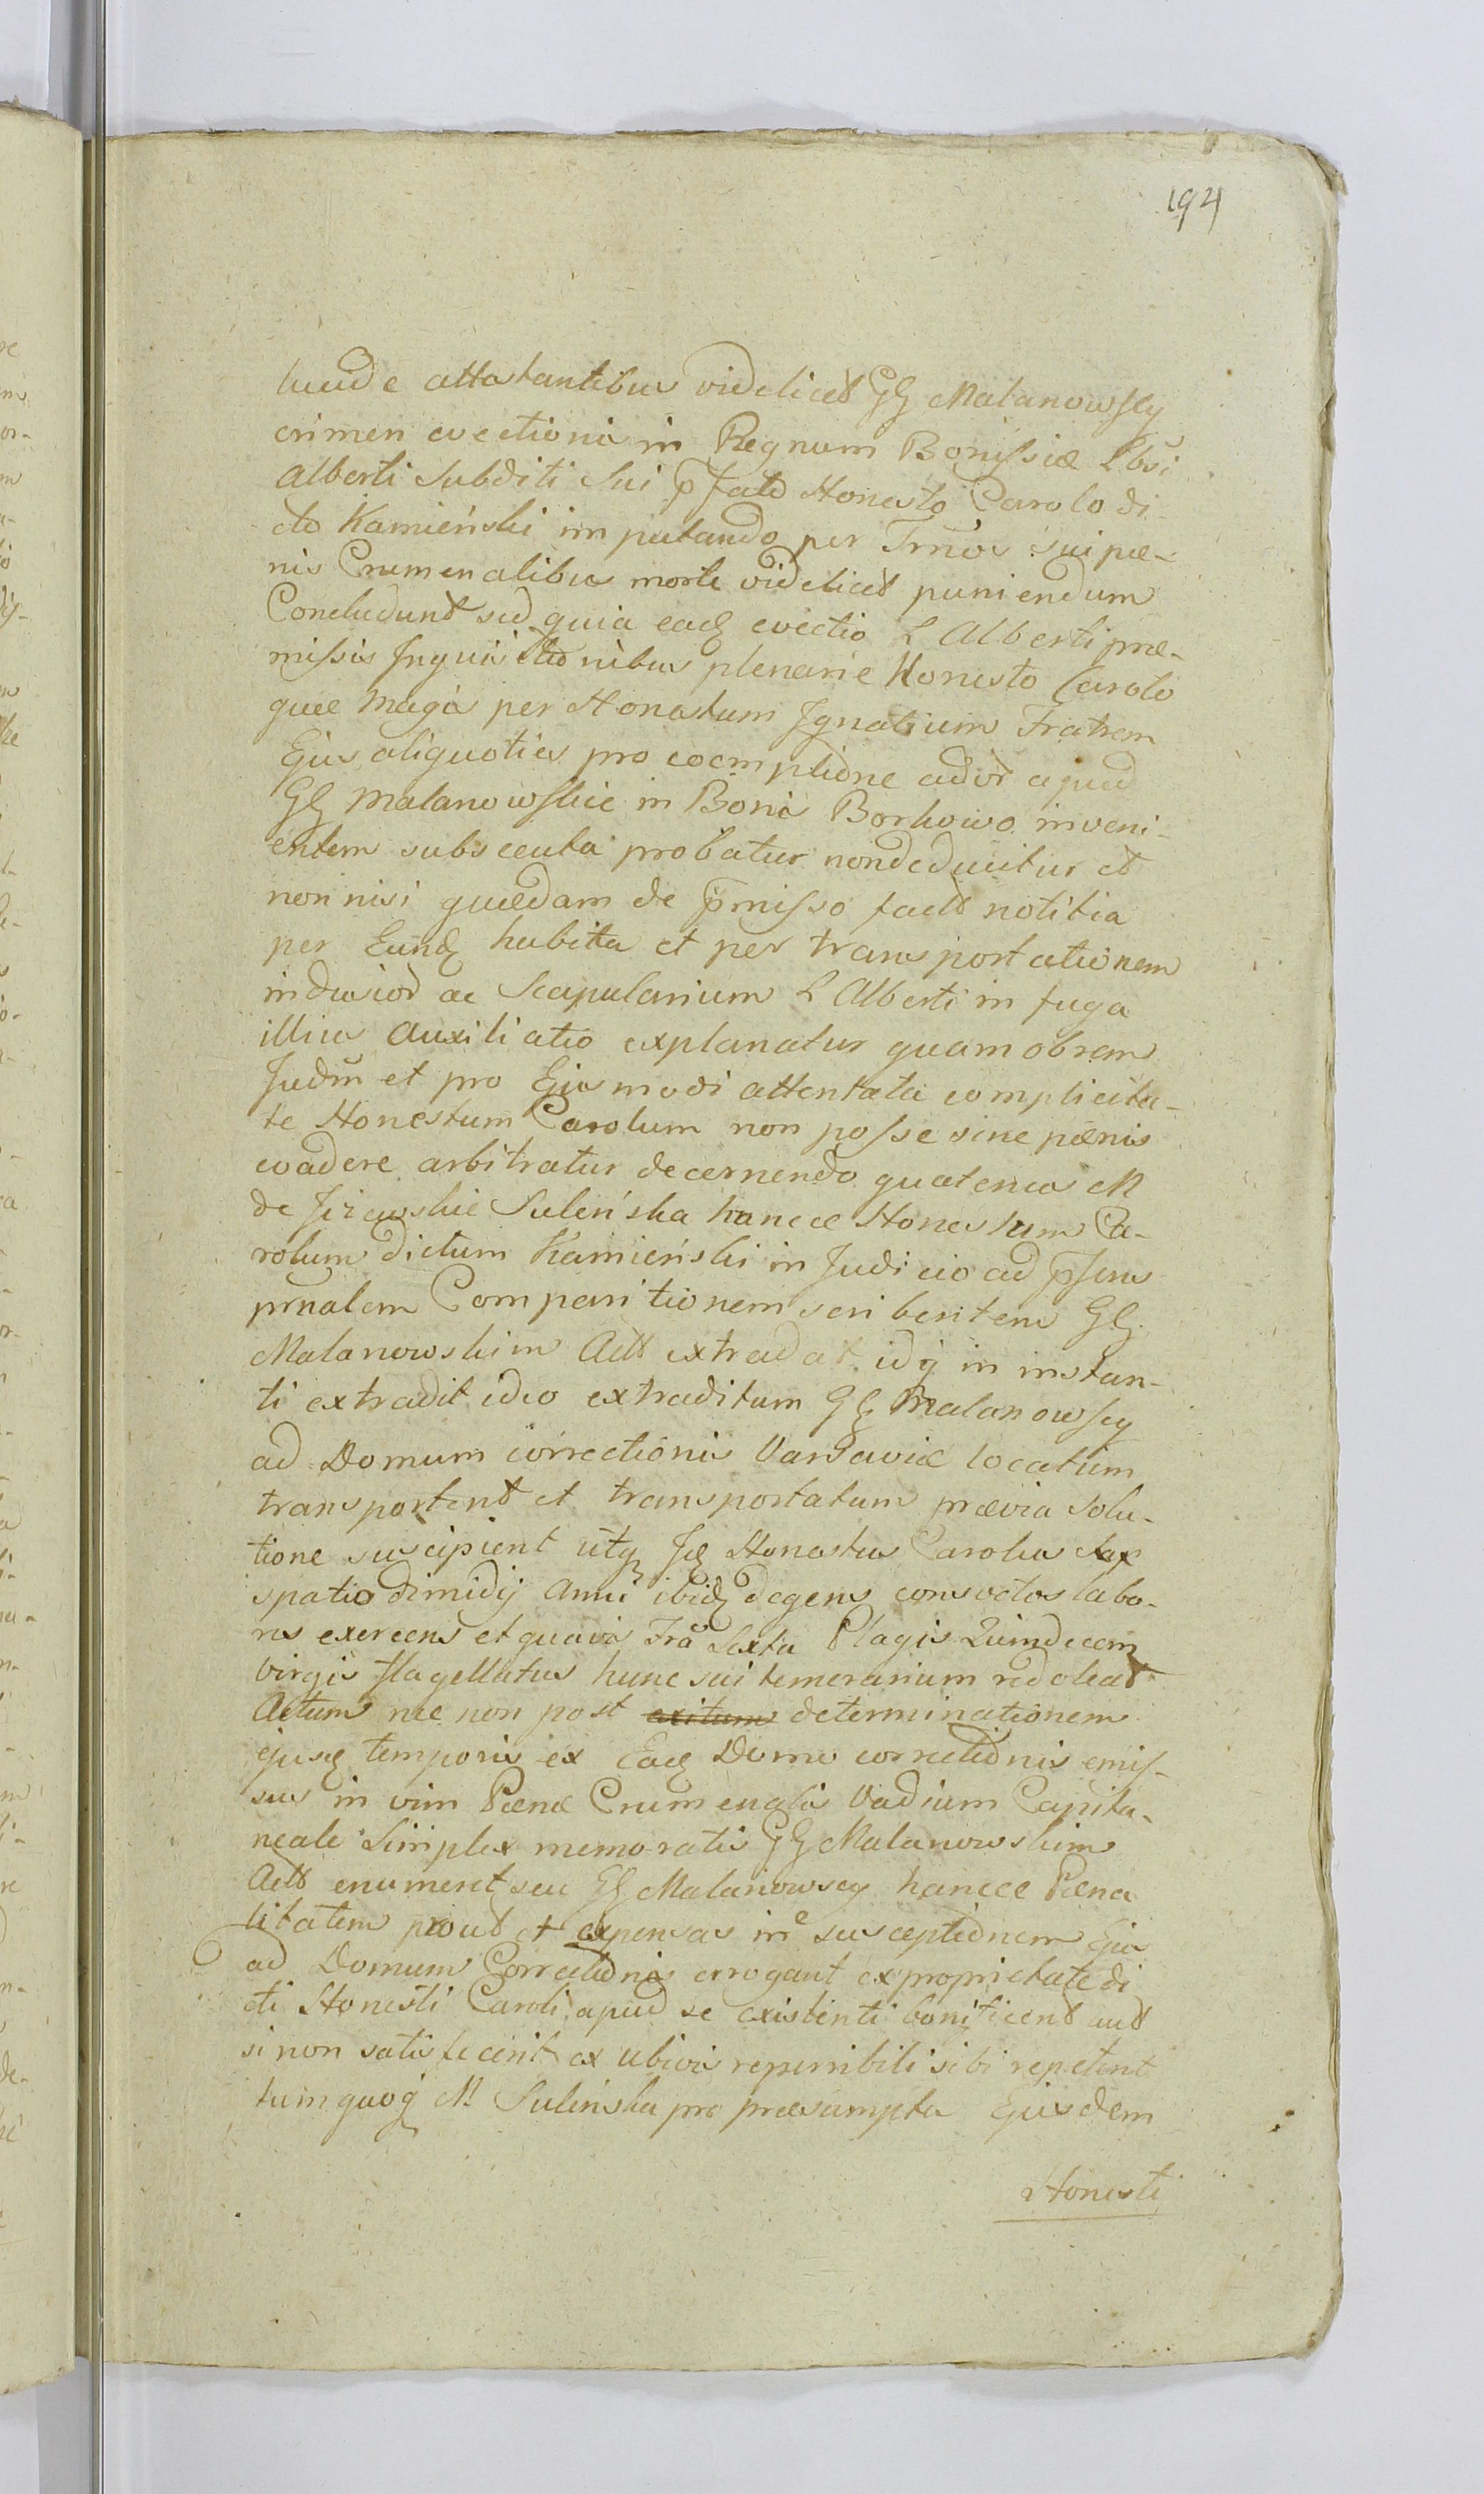 194
lucide attestantibus videlicet GG Malanowscy
crimen evectionis in Regnum Borussiæ Lbsi
Alberti Subditi Sui p̄fato Honesto Carolo di
cto Kamieński imputando per Trnos sui pæ-
nis Crumenalibus morte videlicet puniendum
Concludunt sed quia eadq evectio L Alberti præ-
missis Inquisitionibus plenarie Honesto Carolo
quæ magis per Honestum Ignatium Fratrem
Ejus aliquoties pro coemptione apud
GG Malanowskie in Bonis Borkowo inveni-
entem subsecuta probatur non deducitur et
non nisi quædam de p̄misso facto notitia
per Eundq habita et per transportationem
indusior ac Scapularium L Alberti in fuga
illius Auxiliatio explanatur quam obrem
Judm et pro Ejusmodi attentata complicita-
te Honestum Carolum non posse sine pænis
evadere arbitratur decernendo quatenus M
de Jizewskie Suleńska huncce Honestum Ca-
rolum dictum Kamieński in Judicio ad p̄sens
prnalem Comparitionem scribentem GG
Malanowskim Actt extradat idq in instan-
ti extradit ideo extraditum GG Malanowscy
ad Domum correctionis Varsaviæ locatum
transportent et transportatum prævia Solu-
tione suscipient utq Jd Honestus Carolus
spatio dimidij Anni ibidq degens consvetos labo-
res exercens et quavis Fra Sexta Plagis Quindecem
virgis flagellatus hunc sui temerarium redoleat
Actum nec non post exitum determinationem
ejusd temporis ex Eadq Domo correctionis emis-
sus in vim Pænæ Crumenalis Vadium Capita-
neale Simplex memoratis GG Malanowskim
Actt enumeret seu GG Malanowscy huncce Pæna
litatem prout et expensas ine susceptionem Ejus
ad Domum Correctionis errogant ex proprietate di
cti Honesti Caroli apud se existenti bonificent aut
si non satisfecerit ex ubivis reperibili sibi repetent
tum quoq M Suleńska pro præsumpta Ejusdem
Honesti